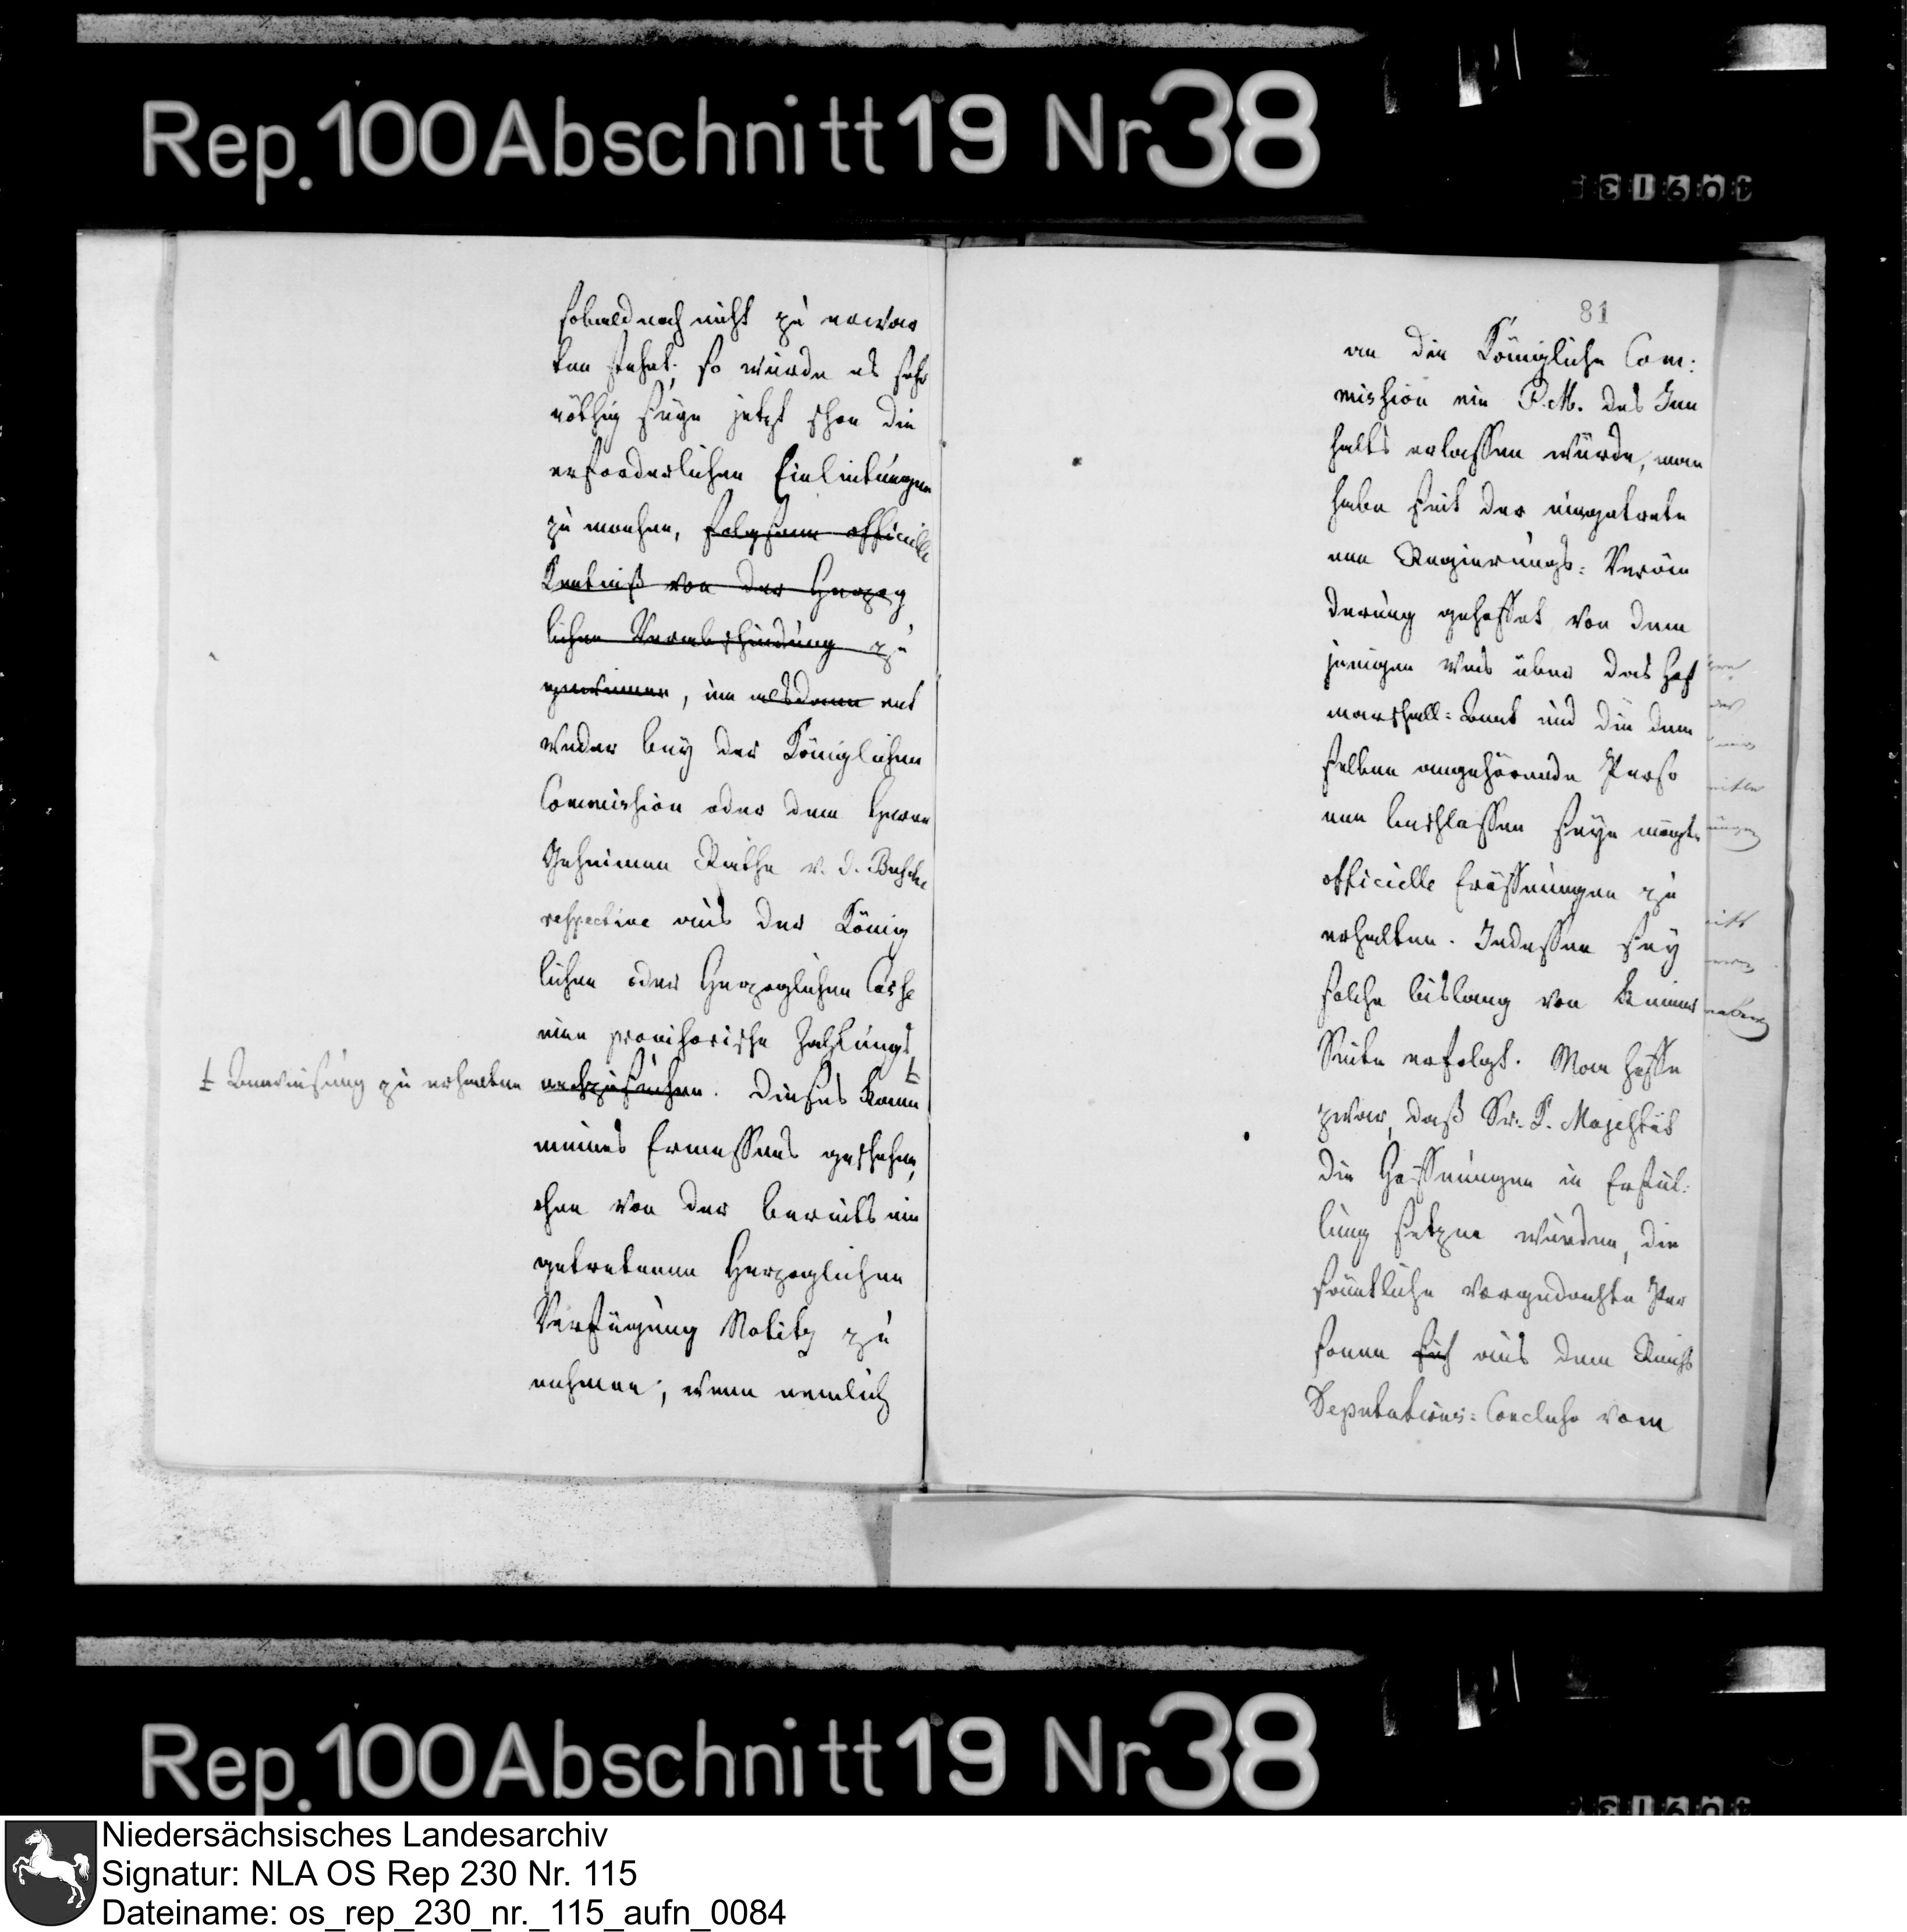 Rep.100 Abschnitt 19 Nr 38
sobald noch nicht zu erwar
ten stehet; so würde es sehr
nöthig seyn jetzt schon die
erforderlichen Einleitungen
zu machen, folgsam officielle
Kentniß von der Herzog
lichen Verabschiedung zu
gewinnen, um alsdann ent
weder bey der Königlichen
Commission oder dem Herrn
Geheimen Rathe v. d. Busche
respective aus der König
lichen oder Herzoglichen Casse
eine provisorische Zahlungs
Anweisung zu erhalten
nachzusuchen. Dieses kann
meines Ermessens geschehen,
ohne von der bereits ein
getretenen Herzoglichen
Verfügung Notitz zu
nehmen; wenn nemlich
81
an die Königliche Com:
mission ein P.M. des Inn
halts erlassen würde, man
habe seit der eingetrete
nen Regierungs: Verän
derung gehoffet von dem
jenigen was über das Hof
marschall: Amt und die dem
selben angehörende Perso
nen beschlossen seyn mögte
officielle Eröffnungen zu
erhalten. Indessen sey
solche bislang von keiner
Seite erfolgt. Man hoffe
zwar, daß Sr. K. Majestät
die Hoffnungen in Erfül:
lung setzen würden, die
sämtliche vorgedachte Per
sonen sich aus dem Reichs
Deputations: Concluso vom
Rep.100 Abschnitt 19 Nr 38
Niedersächsisches Landesarchiv
Signatur: NLA OS Rep 230 Nr. 115
Dateiname: os_rep_230_nr._115_aufn_0084